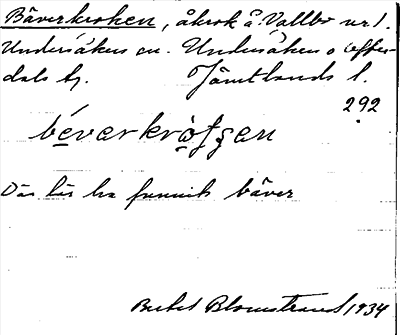 Bäverkroken, åkrok å Vallbo nr 1.
Undersåkers sn. Undersåkers o Offer-
dals tg. Jämtlands l.
292
béverkrò̩ʃʒ̩en
Där lär ha funnits bäver
Bertel Blomstrand 1934